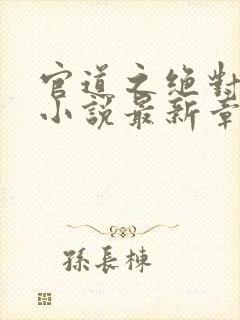 官道之绝對
小說最新章
孫長棟